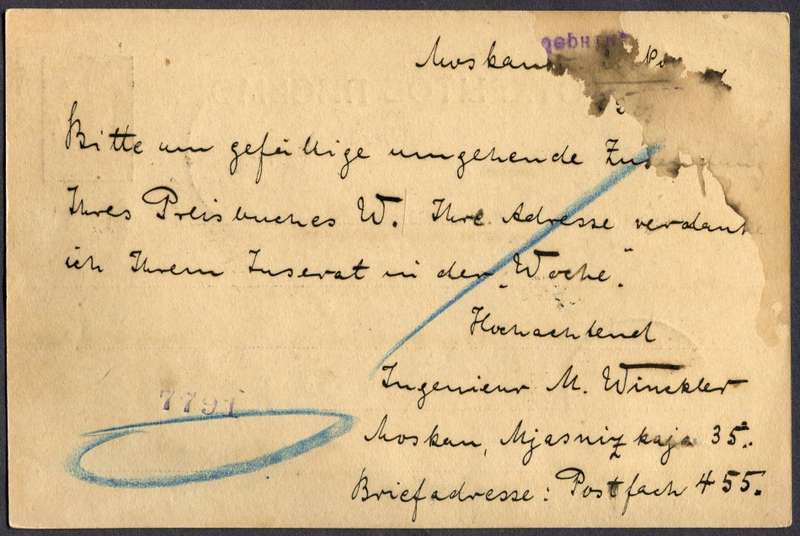 Moskau
Bitte um gefällige umgehende
Ihres Preisbuches W. Ihre Adresse verdanke
ich Ihrem Inserat in der „Woche“.
Hochachtend
Ingenieur M. Winckler
Moskau, Mjasnizkaja 35.
Briefadresse: Postfach 455.
7791